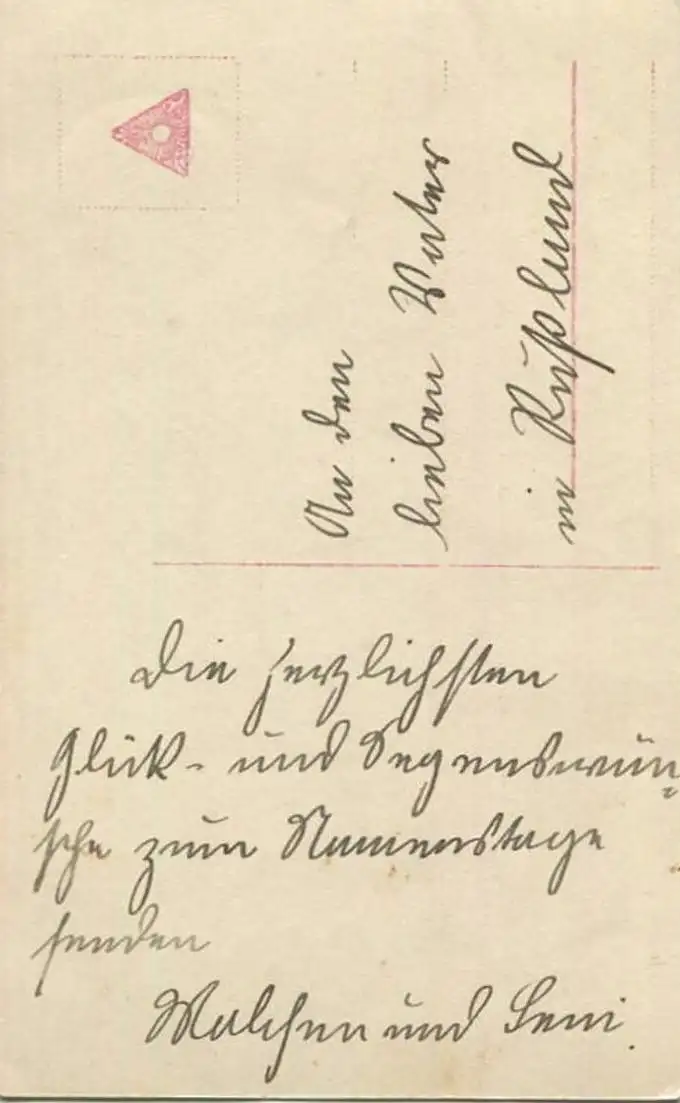 An den
lieben Vater
in Rußland
Die herzlichsten
Glück- und Segenswün-
sche zum Namenstage
senden
und Leni.